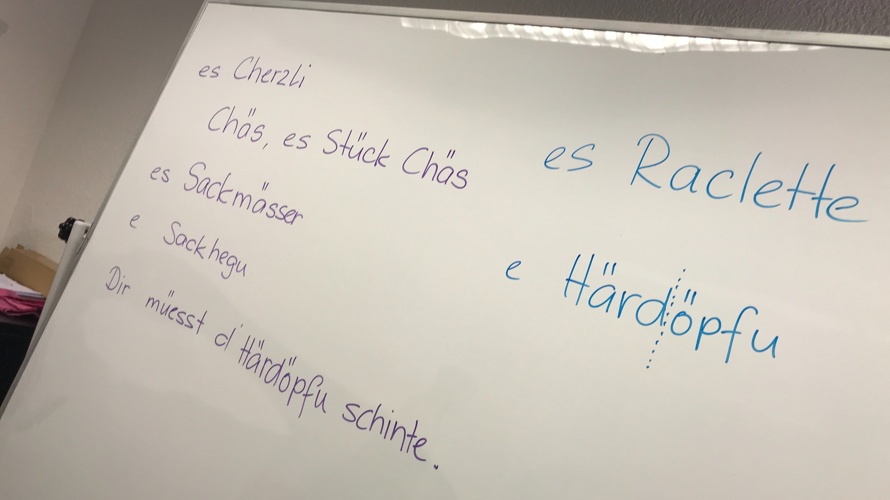 es Cherzli
Chäs, es Stück Chäs
es Sackmässer
e Sackhegu
Dir müesst d'Härdöpfu schinte.
es Raclette
e Härdöpfu